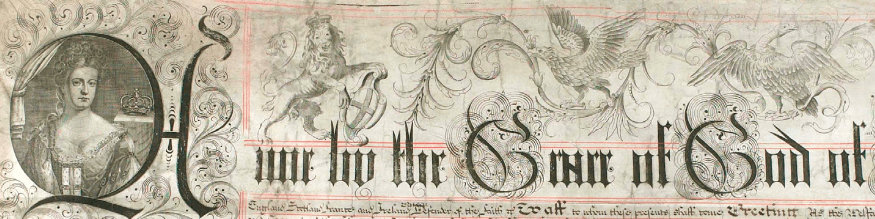 Anne by the Grace of God of
England Scotland France and Ireland Defender of the Faith &c To all to whom these presents shall come Greeting